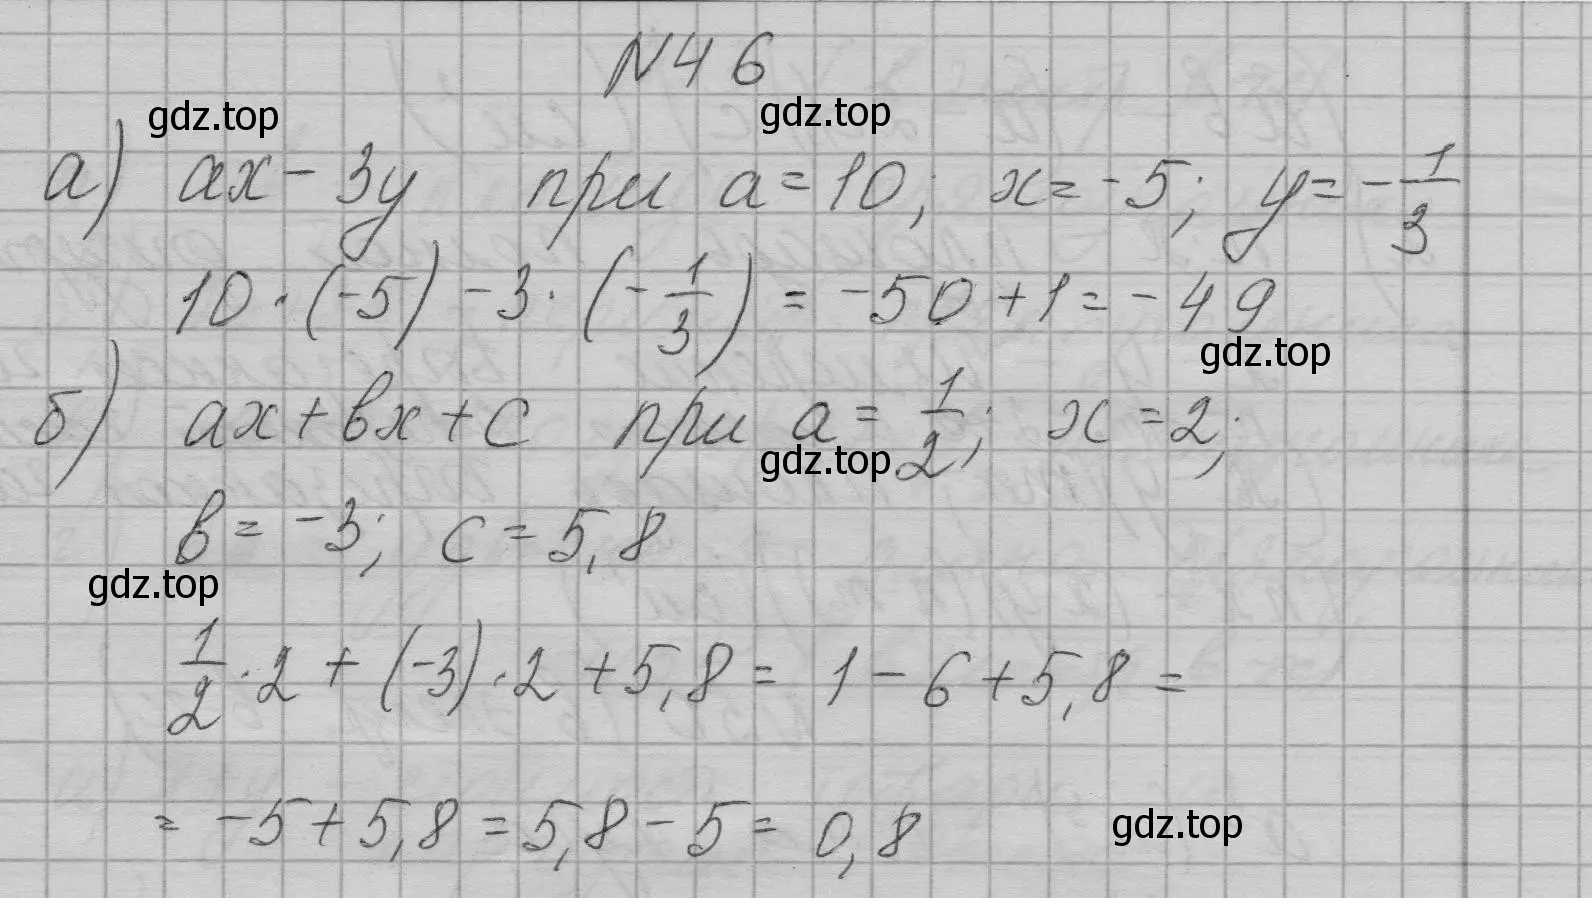 N46
gdz.top
gdz.top
а) ax - 3y при a = 10; x = -5; y = -1/3
10 · (-5) - 3 · (-1/3) = -50 + 1 = -49
gdz.top
б) ax + bx + c при a = 1/2; x = 2;
gdz.top
b = -3; c = 5,8
gdz.top
1/2 · 2 + (-3) · 2 + 5,8 = 1 - 6 + 5,8 =
= -5 + 5,8 = 5,8 - 5 = 0,8
gdz.top